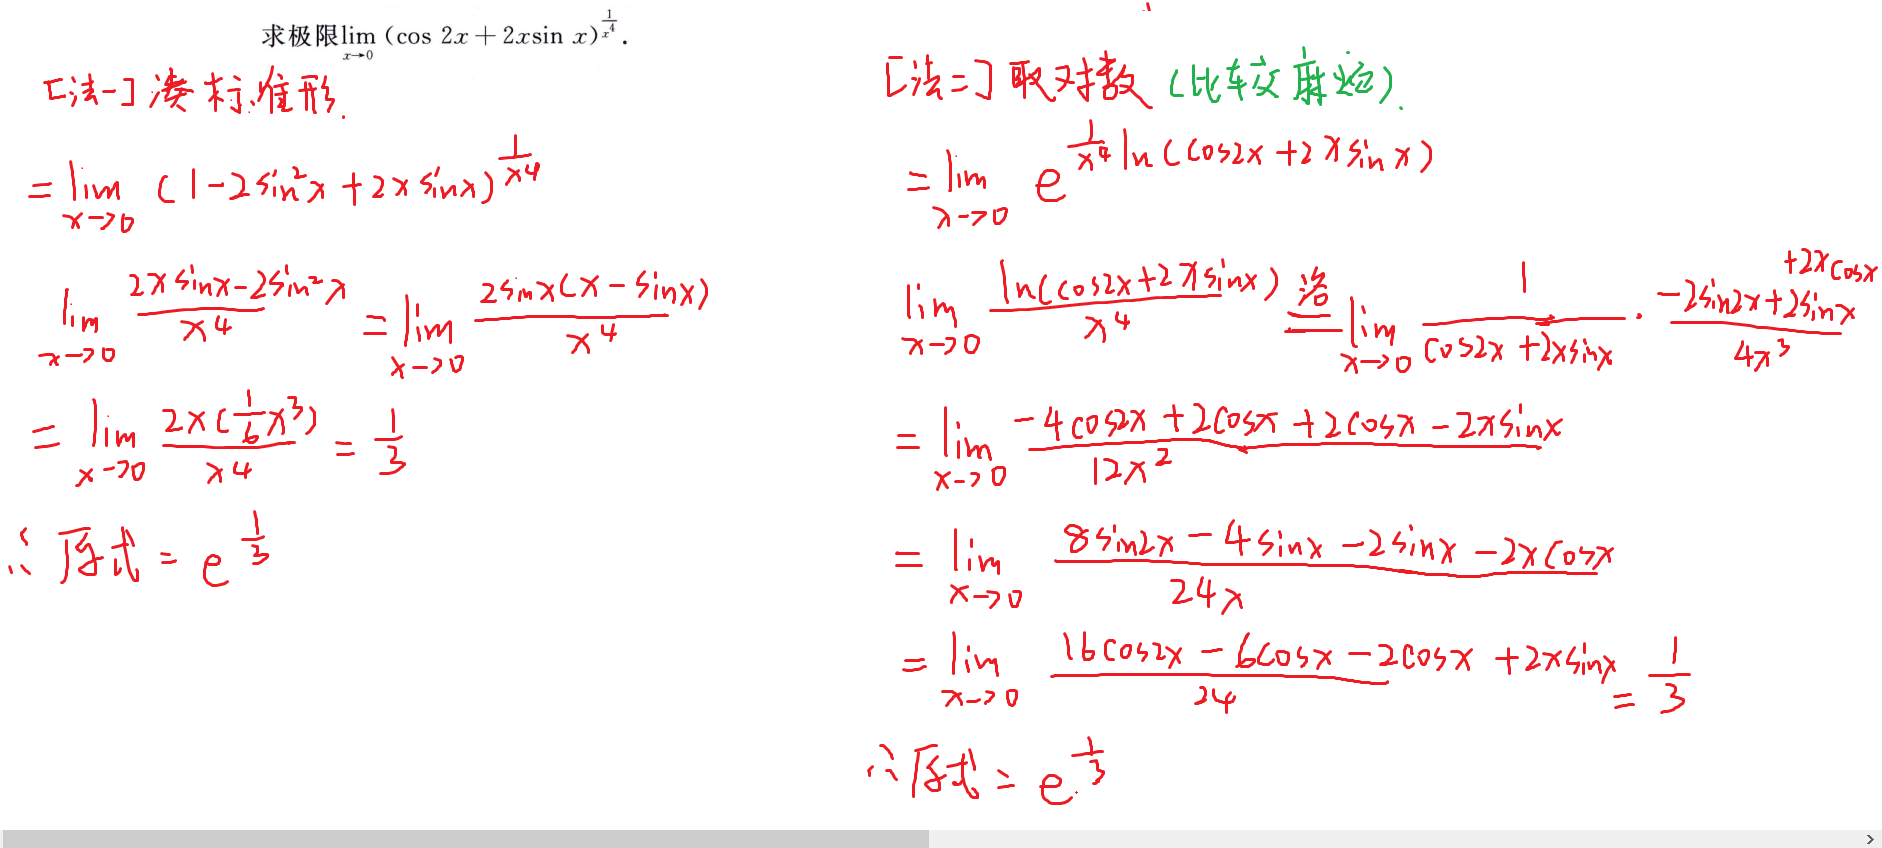 求极限lim(x→0) (cos 2x + 2xsin x)^(1/x^4).
[法一] 凑标准形.
= lim(x→0) (1-2sin²x+2xsinx)^(1/x^4)
lim(x→0) (2xsinx-2sin²x)/x^4 = lim(x→0) 2sinx(x-sinx)/x^4
= lim(x→0) 2x(1/6 x³)/x^4 = 1/3
∴ 原式 = e^(1/3)
[法二] 取对数 (比较麻烦).
= lim(x→0) e^(1/x^4 ln(cos2x+2xsinx))
lim(x→0) ln(cos2x+2xsinx)/x^4 洛= lim(x→0) 1/(cos2x+2xsinx) · (-2sin2x+2sinx+2xcosx)/4x³
= lim(x→0) (-4cos2x+2cosx+2cosx-2xsinx)/12x²
= lim(x→0) (8sin2x-4sinx-2sinx-2xcosx)/24x
= lim(x→0) (16cos2x-6cosx-2cosx+2xsinx)/24 = 1/3
∴ 原式 = e^(1/3)